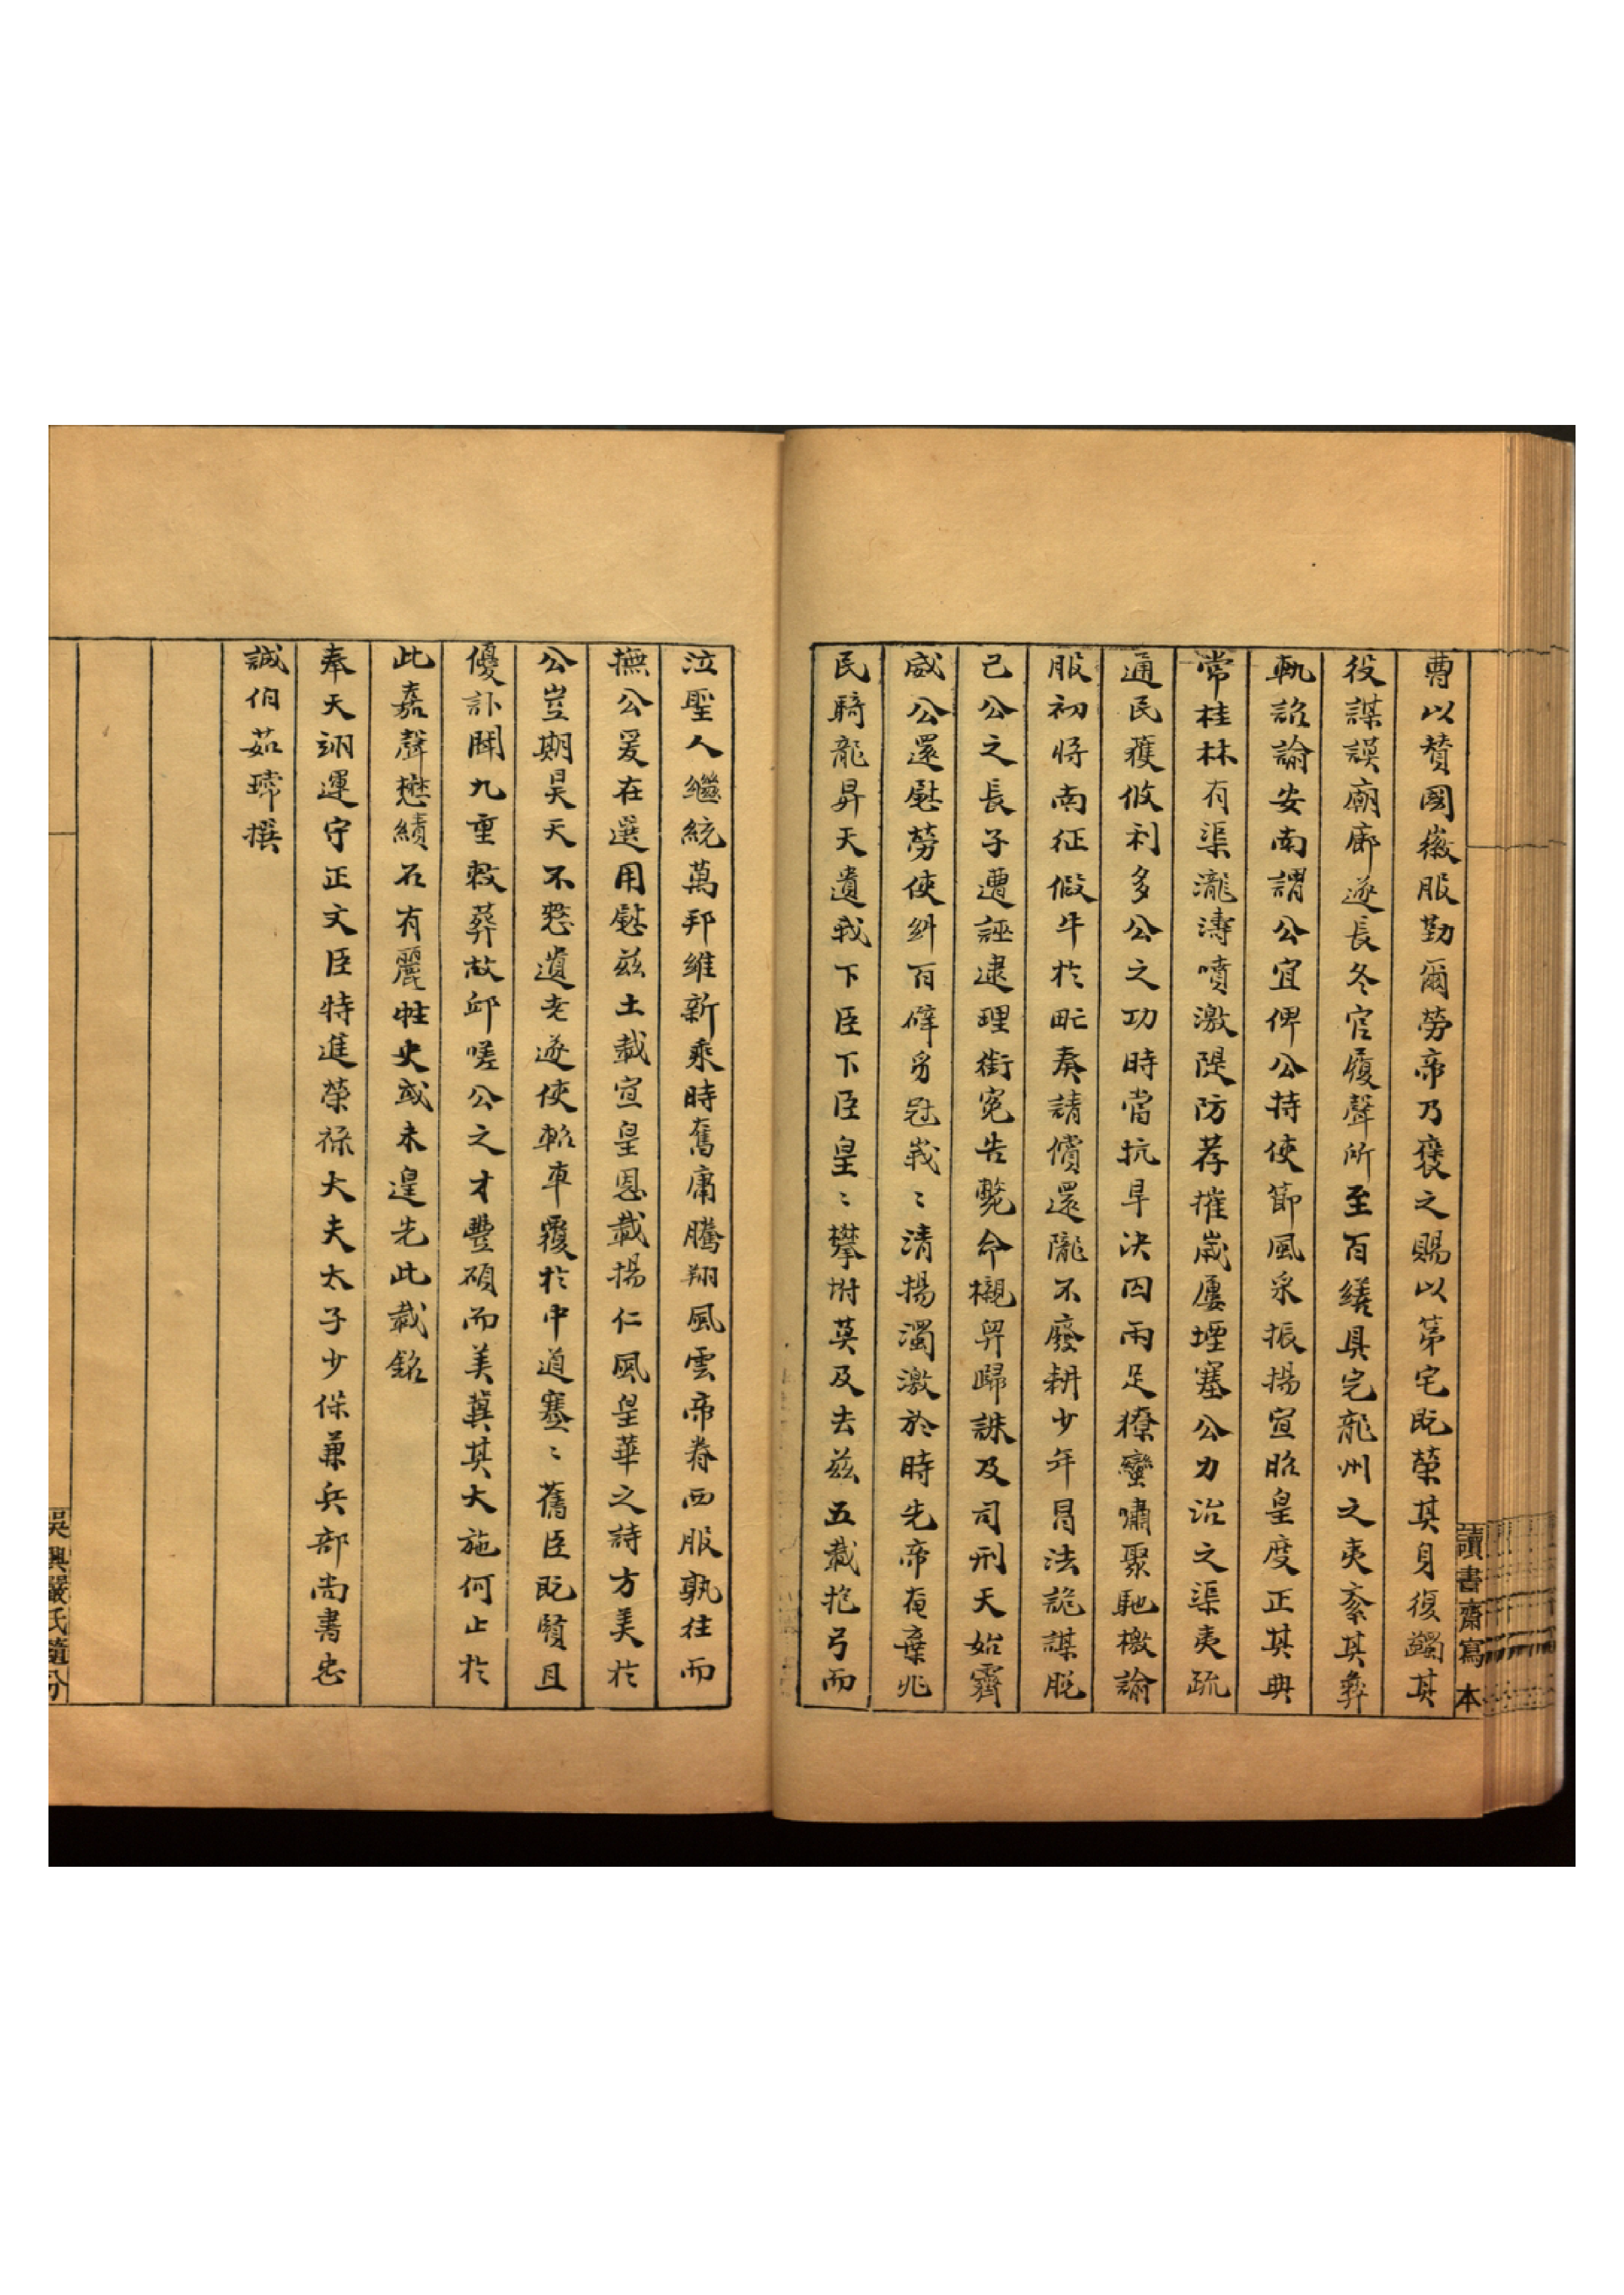 曹以贊國徽服勤爾勞帝乃襃之賜以第宅既榮其身復蠲其
役謀謨廟廊遂長冬官履聲所至百繕具完龍州之夷紊其彝
軌詔諭安南謂公宜俾公持使節風采振揚宣昭皇度正其典
常桂林有渠瀧濤噴激隄防荐摧歲屢堙塞公力治之渠夷疏
通民獲攸利多公之功時當抗旱決囚雨足獠蠻嘯聚馳檄諭
服初將南征假牛於甿奏請償還隴不廢耕少年冒法詭謀脫
己公之長子遭誣逮理銜冤告斃命櫬舁歸誅及司刑天始霽
威公還慰勞使糾百辟豸冠峩〻清揚濁激於時先帝奄棄兆
民騎龍昇天遺我下臣下臣皇〻攀坿莫及去茲五載抱弓而
泣聖人繼統萬邦維新乘時奮庸騰翔風雲帝眷西服孰往而
撫公爰在選用慰茲土載宣皇恩載揚仁風皇華之詩方美於
公豈期昊天不憖遺老遂使軺車覆於中道蹇〻舊臣既賢且
優訃聞九重敕葬故邱嗟公之才豐碩而美冀其大施何止於
此嘉聲懋績石有麗牲史或未遑先此載銘
奉天翊運守正文臣特進榮祿大夫太子少保兼兵部尚書忠
誠伯茹瑺撰
讀書齋寫本
吳興嚴氏隨分